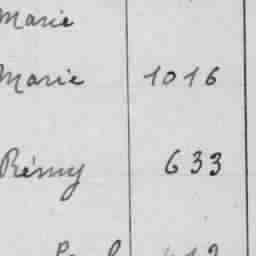 Marie
Marie 1016
Rémy 633